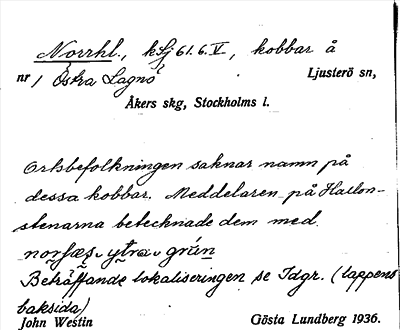 Norrhl., kSj 61.6.V, kobbar å
nr 1 Östra Lagnö Ljusterö sn,
Åkers skg, Stockholms l.
Ortsbefolkningen saknar namn på
dessa kobbar. Meddelaren på Hallon-
stenarna betecknade dem med
Beträffande lokaliseringen se Tdgr. (lappens
baksida)
John Westin Gösta Lundberg 1936.